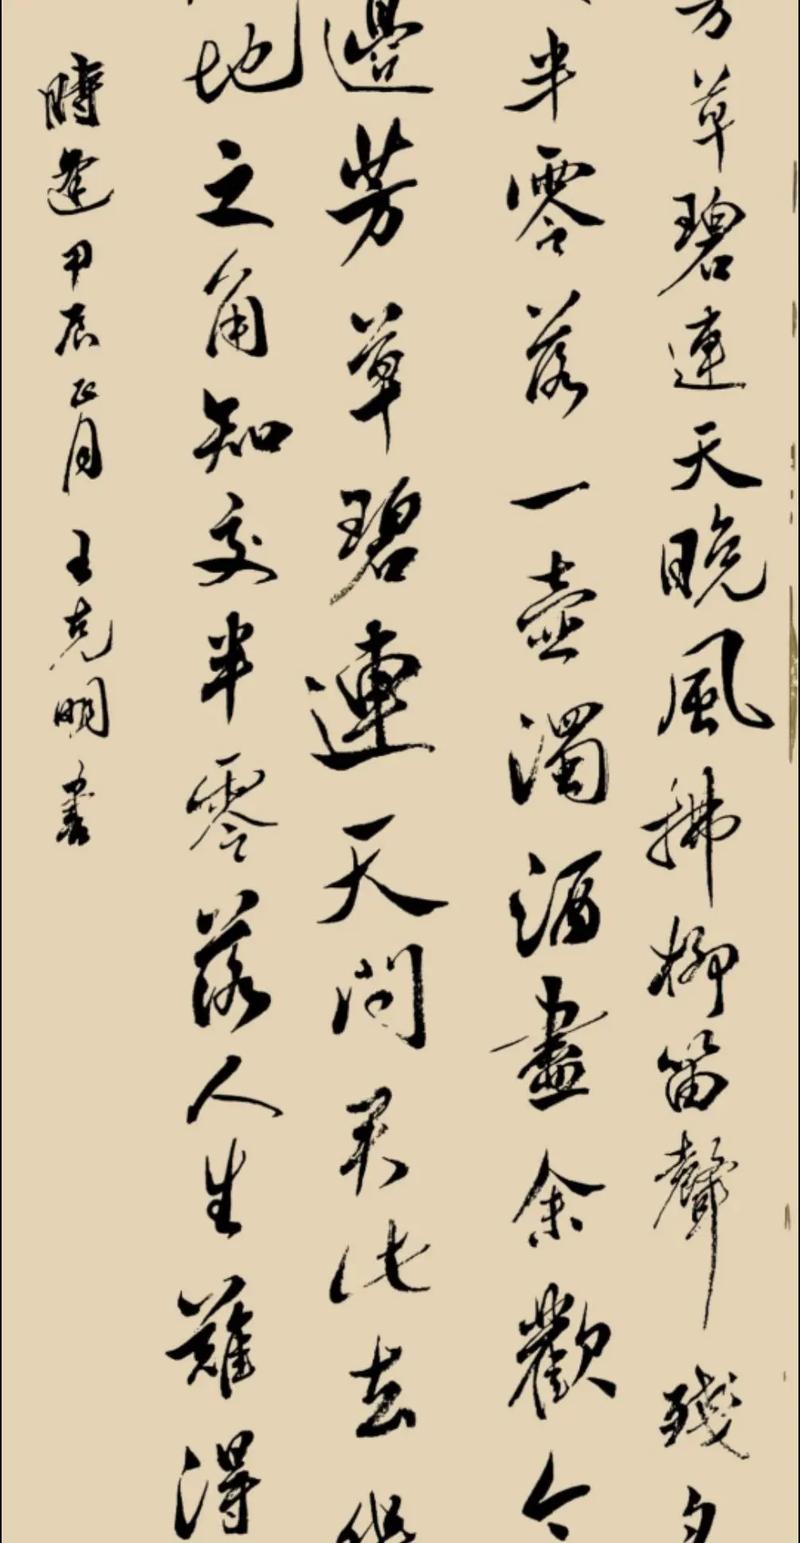 芳草碧連天晚風拂柳笛聲殘夕
半零落一壺濁酒盡余歡今
邊芳草碧連天問君此去幾
地之角知交半零落人生難得
時逢甲辰正月王克明書